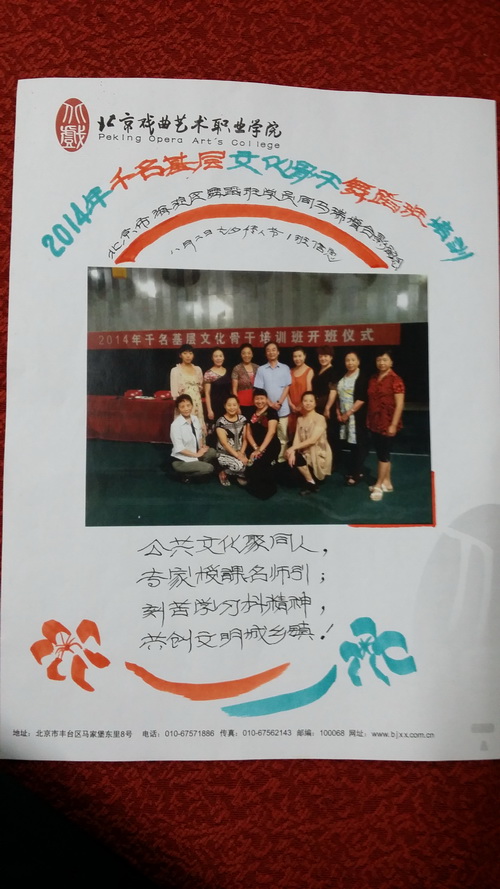 北戏
北京戏曲艺术职业学院
Peking Opera Art's College
2014年千名基层文化骨干舞蹈班培训
北京市 区舞蹈班学员同马 合影留念
八月二日七夕情人节1班信息
2014年千名基层文化骨干培训班开班仪式
公共文化聚同人，
专家授课名师引；
刻苦学习抖精神，
共创文明城乡镇！
地址：北京市丰台区马家堡东里8号 电话：010-67571886 传真：010-67562143 邮编：100068 网址：www.bjxx.com.cn